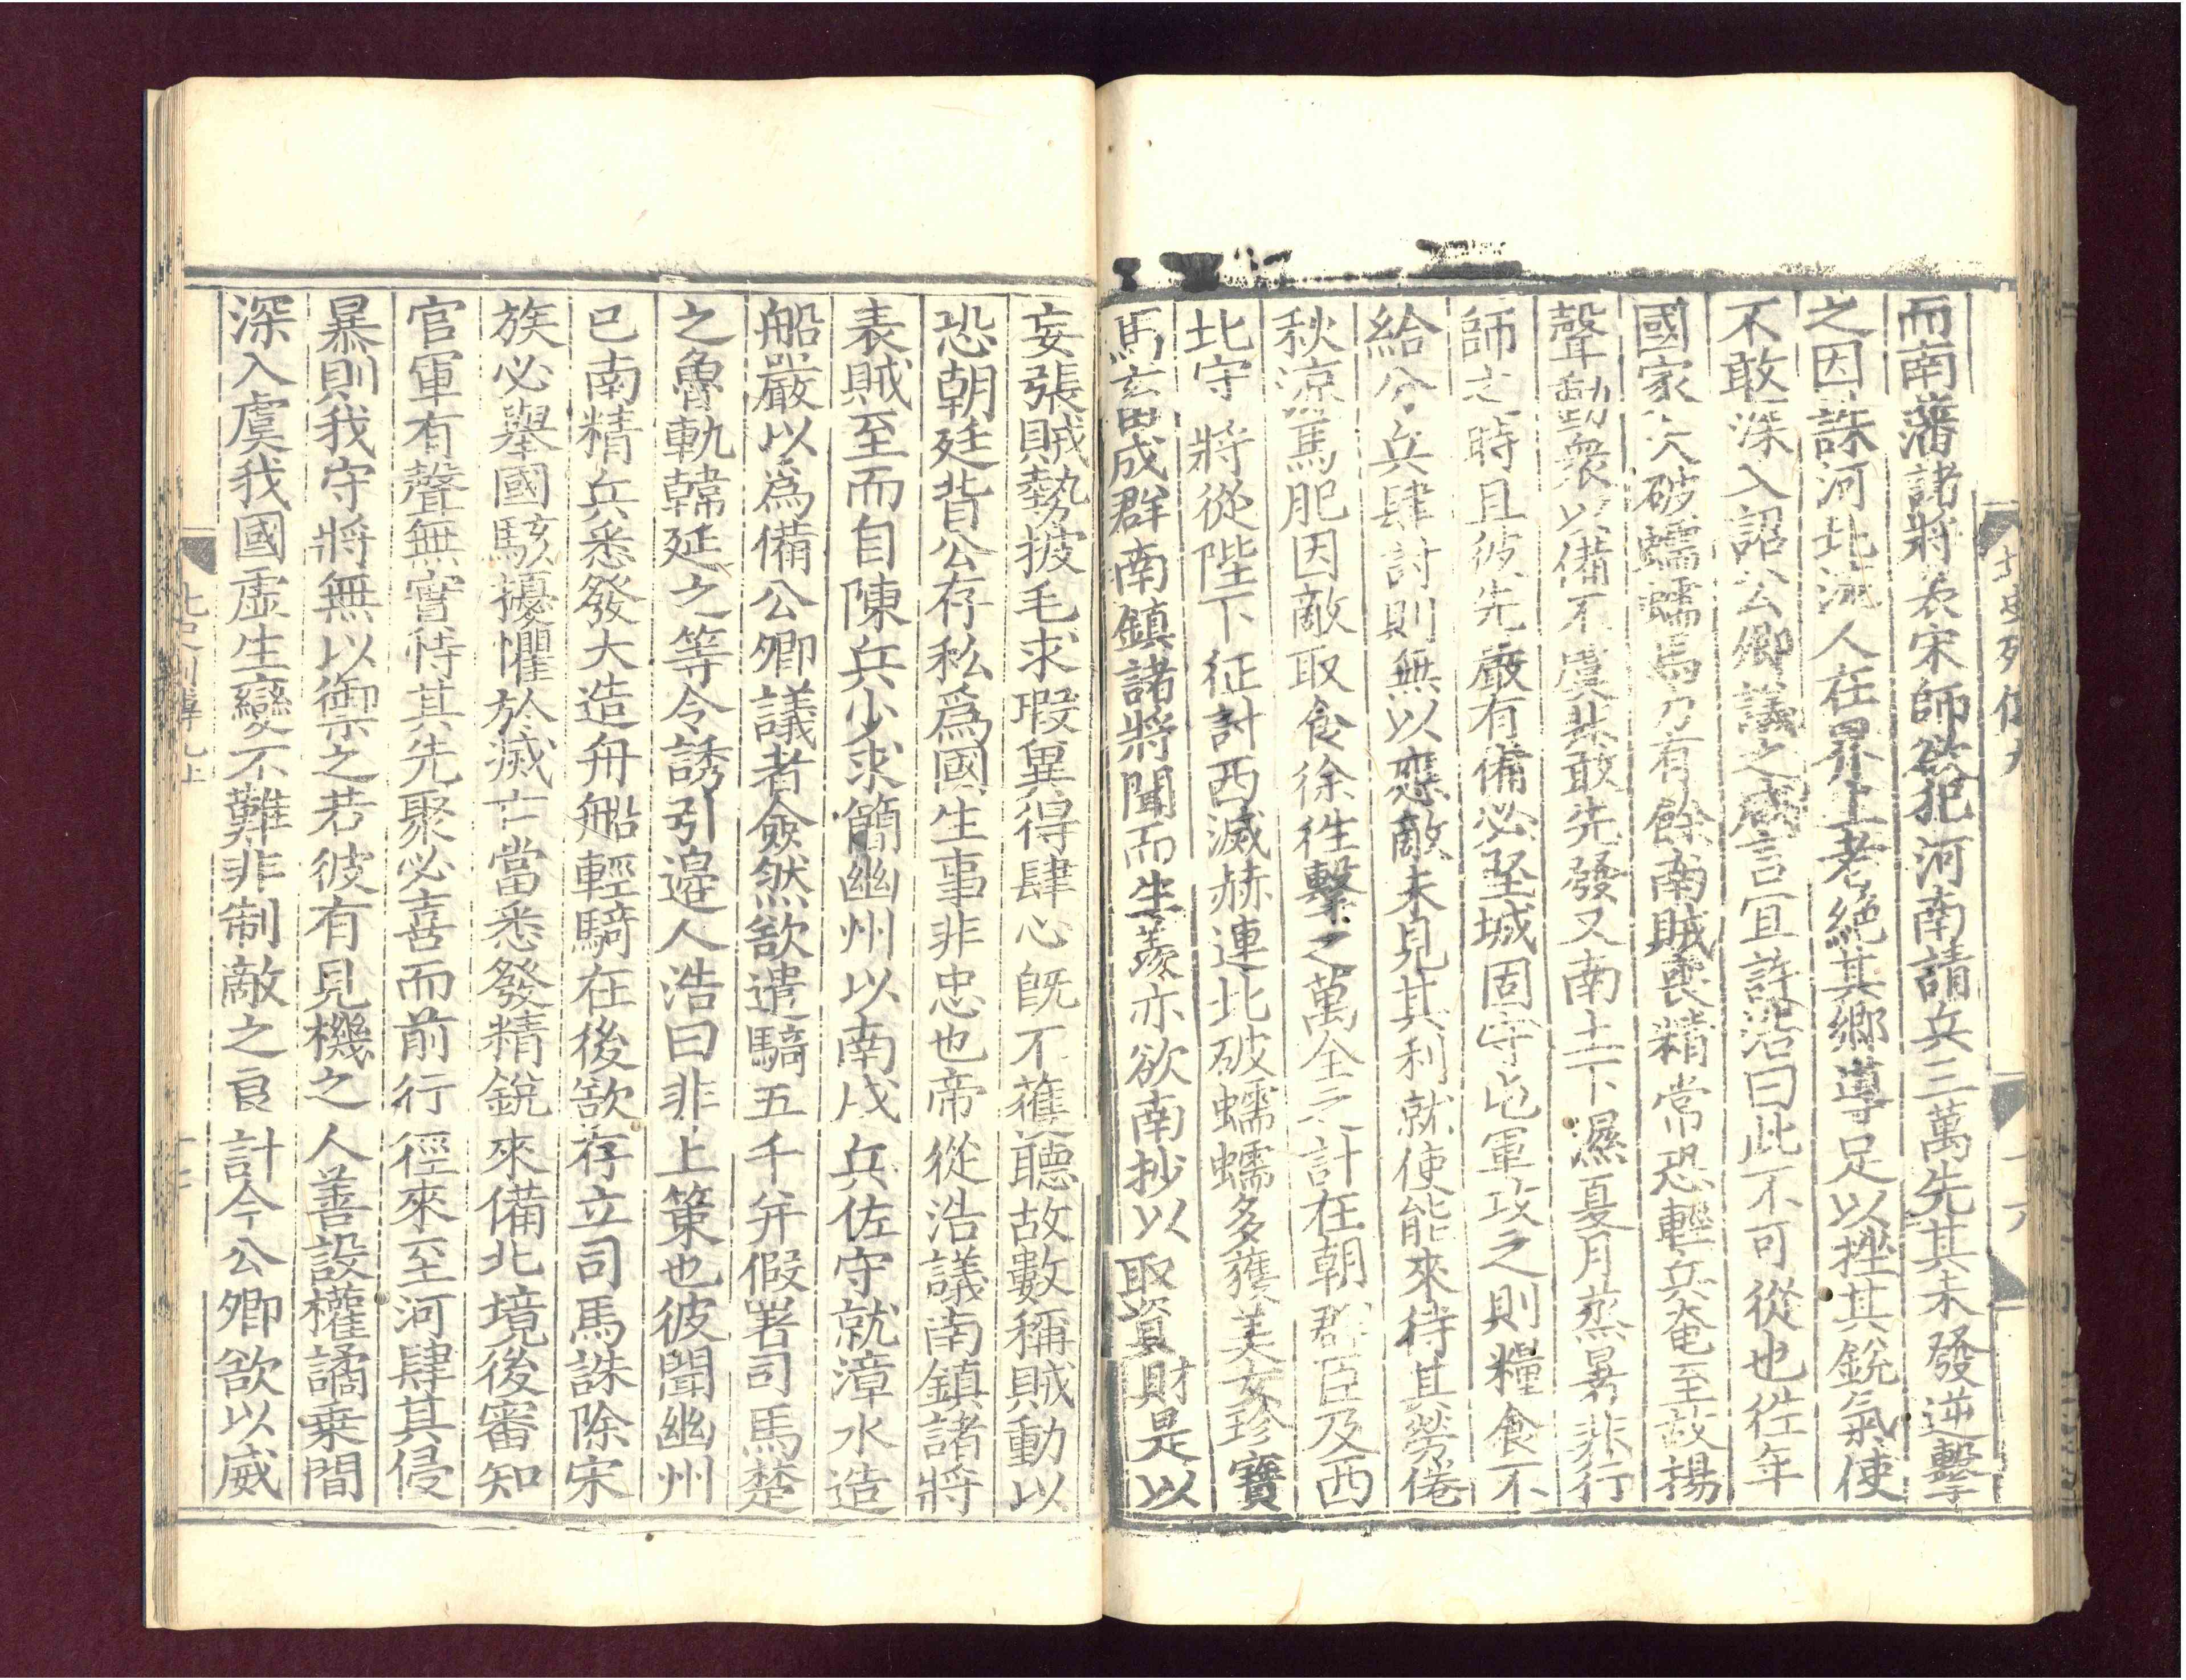 北史列傳九
十六
而南藩諸將表宋師欲犯河南請兵三萬先其未發逆擊
之因誅河北流人在界上者絕其鄉導足以挫其銳氣使
不敢深入詔公卿議之咸言宜許浩曰此不可從也往年
國家大破蠕蠕馬力有餘南賊喪精常恐輕兵奄至故揚
聲動衆以備不虞非敢先發又南土下濕夏月蒸暑非行
師之時且彼先嚴有備必堅城固守屯軍攻之則糧食不
給分兵肆討則無以應敵未見其利就使能來待其勞倦
秋涼馬肥因敵取食徐往擊之萬全之計在朝群臣及西
北守將從陛下征討西滅赫連北破蠕蠕多獲美女珍寶
馬畜成群南鎮諸將聞而生羨亦欲南抄以取資財是以
妄張賊勢披毛求瑕冀得肆心旣不獲聽故數稱賊動以
恐朝廷背公存私爲國生事非忠也帝從浩議南鎮諸將
表賊至而自陳兵少求簡幽州以南戍兵佐守就漳水造
船嚴以爲備公卿議者僉然欲遣騎五千并假署司馬楚
之魯軌韓延之等令誘引邊人浩曰非上策也彼聞幽州
已南精兵悉發大造舟船輕騎在後欲存立司馬誅除宋
族必舉國駭擾懼於滅亡當悉發精銳來備北境後審知
官軍有聲無實恃其先聚必喜而前行徑來至河肆其侵
暴則我守將無以禦之若彼有見機之人善設權譎乗間
深入虞我國虛生變不難非制敵之良計今公卿欲以威
北史列傳九上